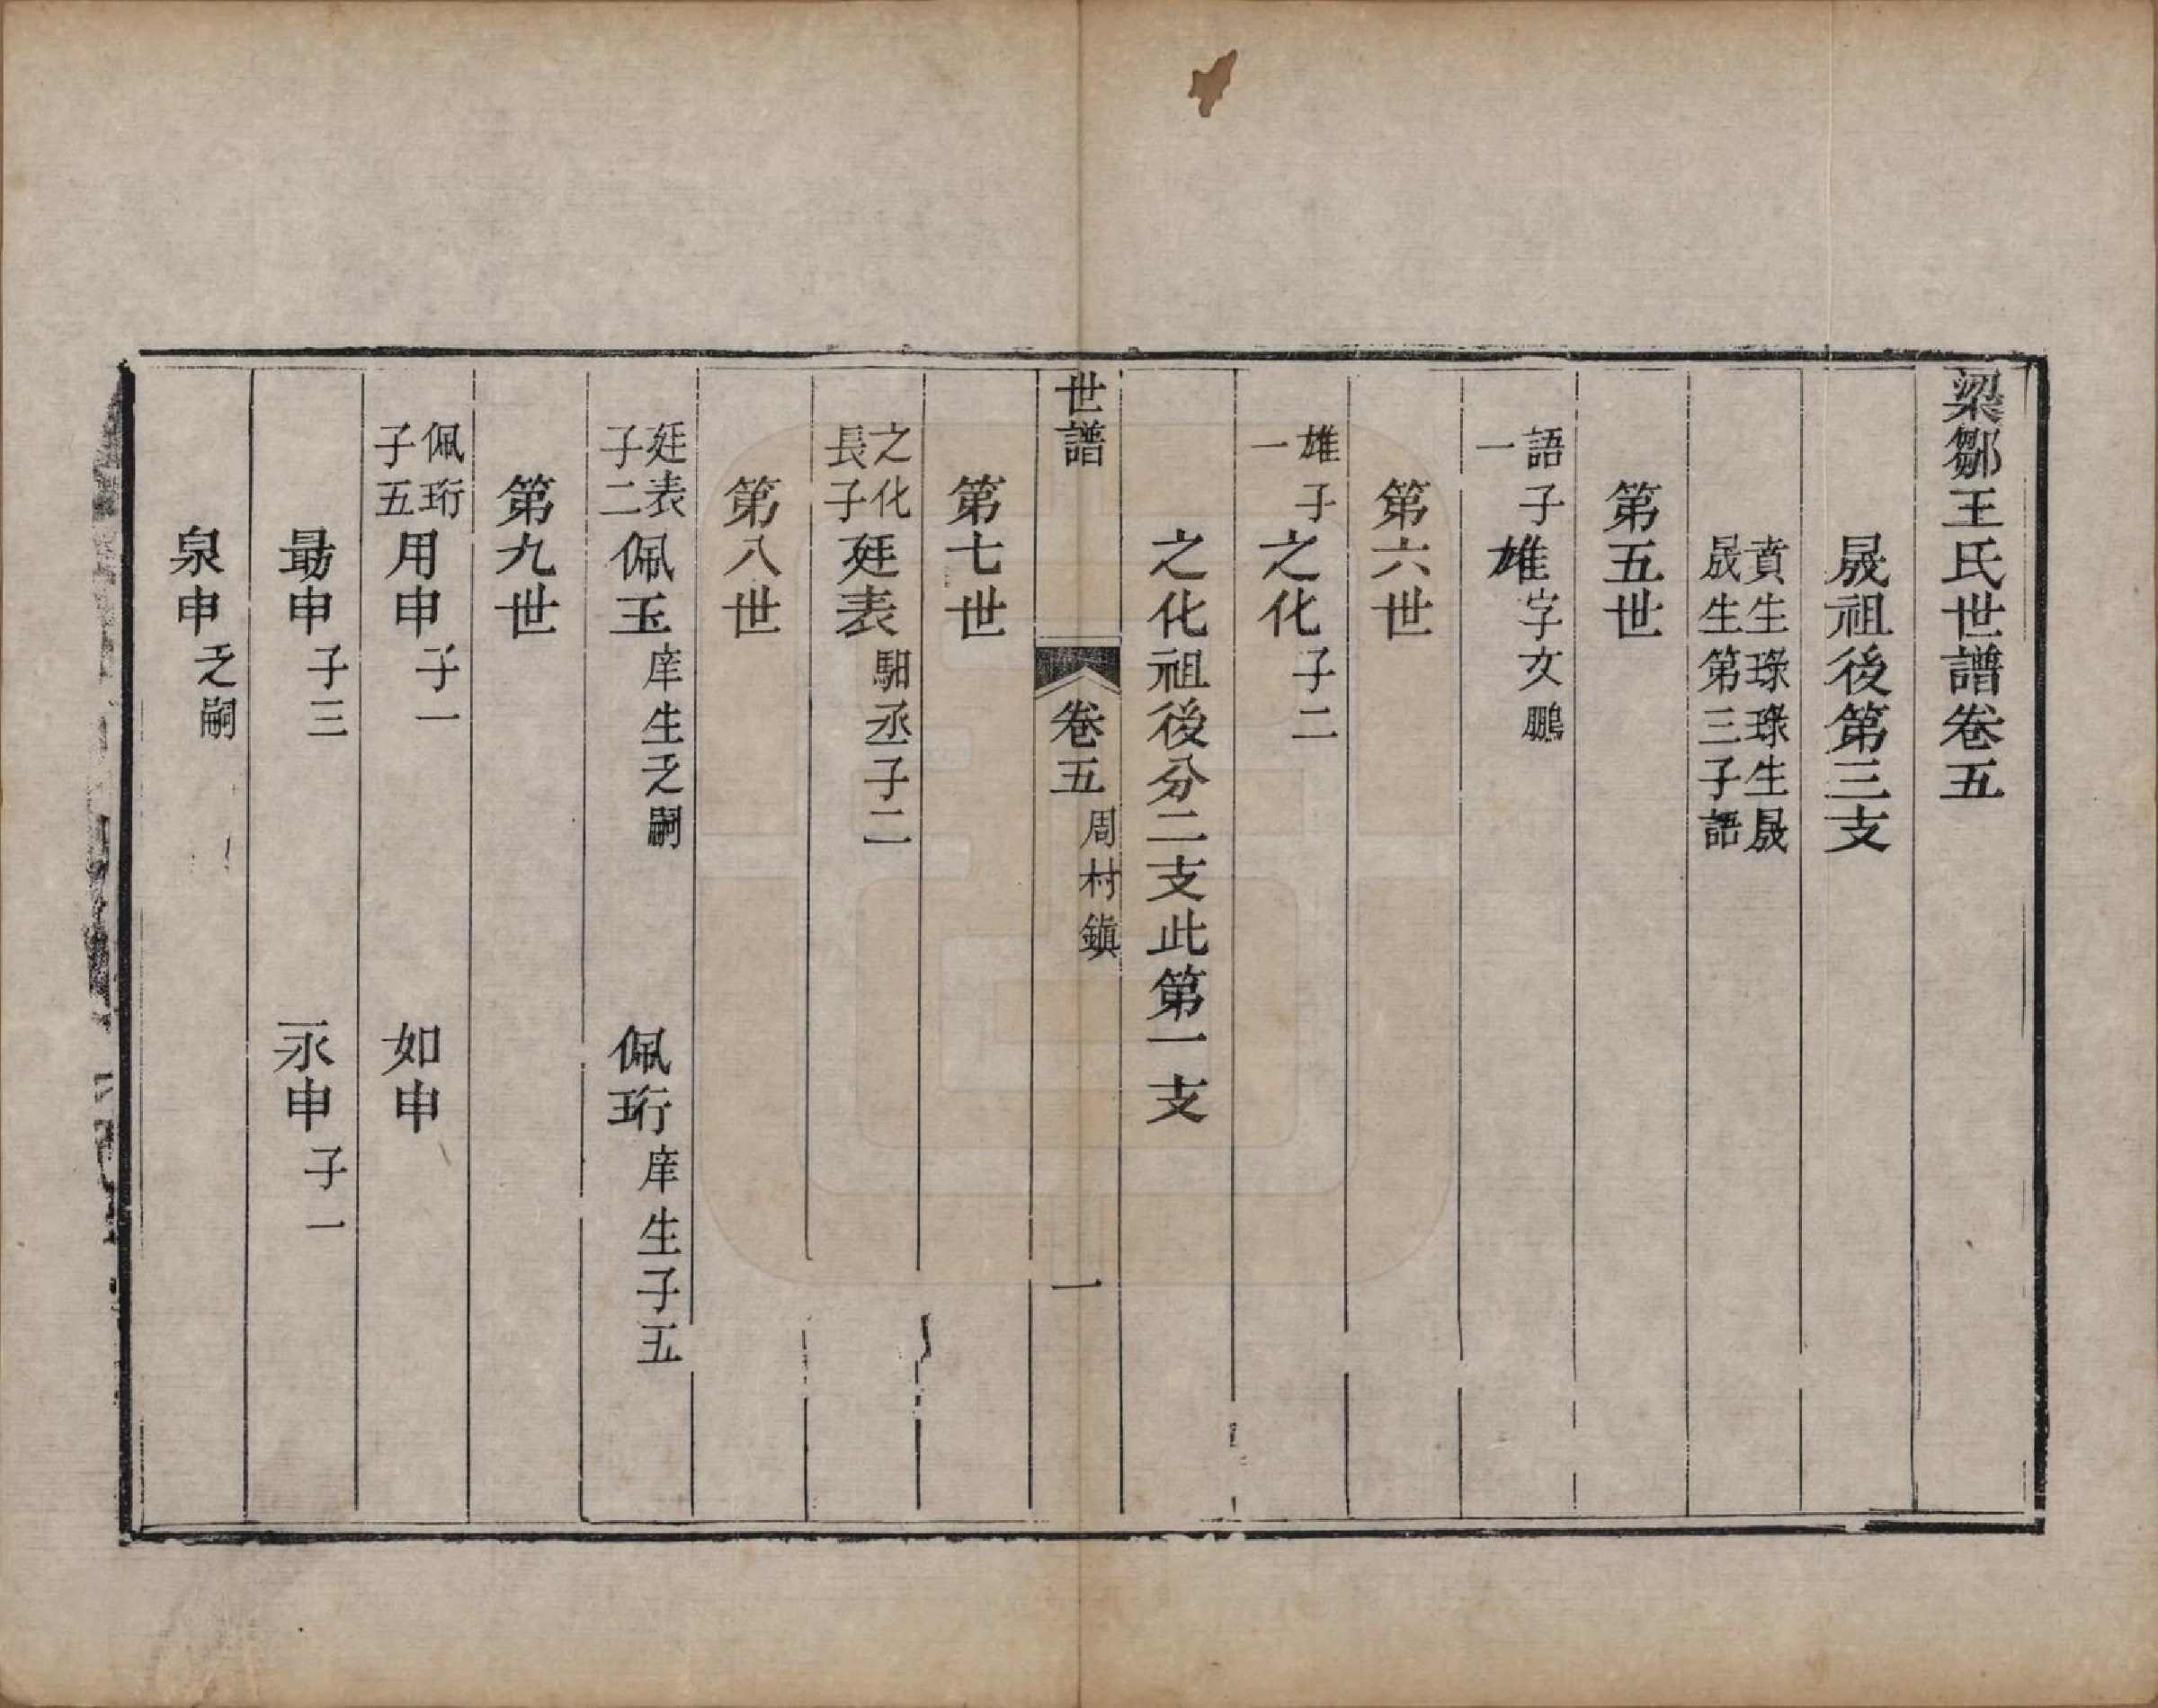 梁鄒王氏世譜卷五
晟祖後第三支
賁生琭琭生晟
晟生第三子語
第五世
語子一
雄字文鵬
第六世
雄子一
之化子二
之化祖後分二支此第一支
世譜 卷五 周村鎮 一
第七世
之化長子
廷表馹丞子二
第八世
廷表子二
佩玉庠生乏嗣 佩珩庠生子五
第九世
佩珩子五
用申子一 如申
最申子三 永申子一
泉申乏嗣